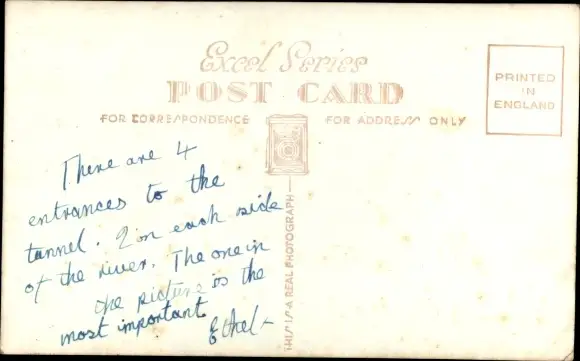 Excel Series
POST CARD
FOR CORRESPONDENCE
FOR ADDRESS ONLY
PRINTED
IN
ENGLAND
THIS IS A REAL PHOTOGRAPH
There are 4
entrances to the
tunnel. 2 on each side
of the river. The one in
the picture is the
most important.
Ethel